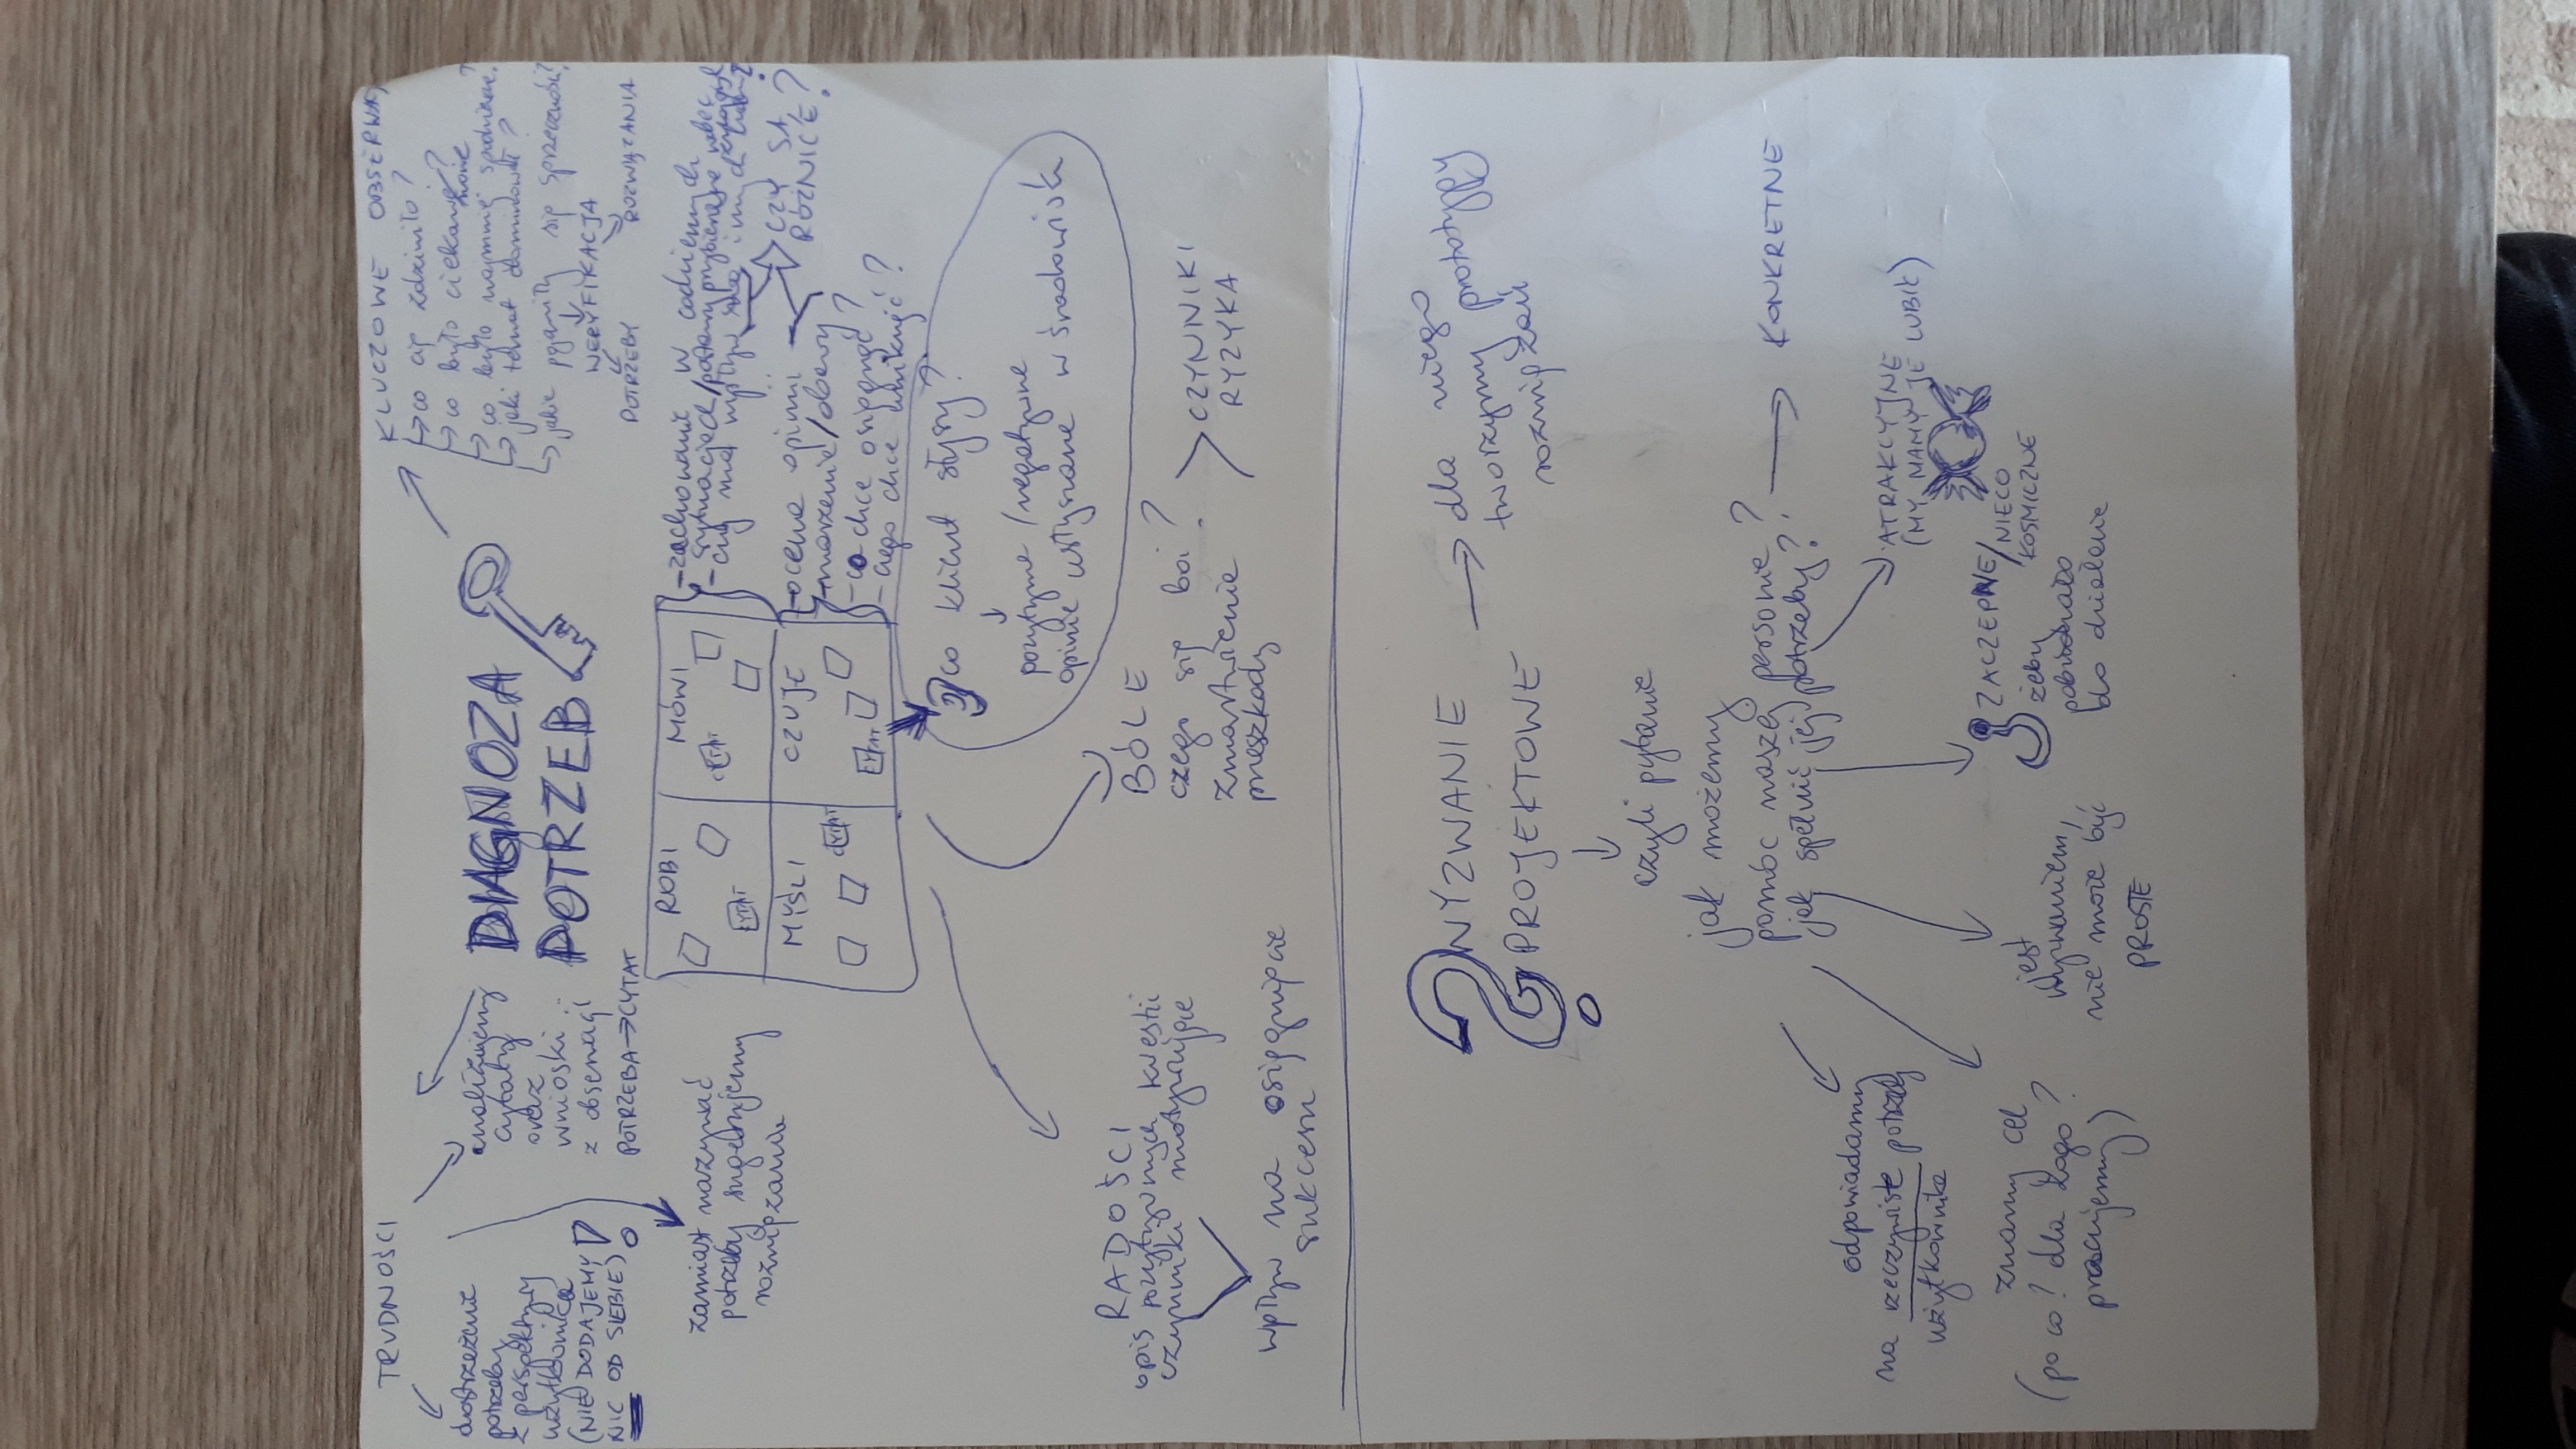 TRUDNOŚCI
dostrzeżenie
potrzeby
z perspektywy
użytkownika
(NIE DODAJEMY
NIC OD SIEBIE)!
analizujemy
cytaty
oraz
wnioski
z obserwacji
POTRZEBA→CYTAT
zamiast nazywać
potrzeby sugerujemy
rozwiązanie
DIAGNOZA
POTRZEB
KLUCZOWE OBSERWACJE
co cię zdziwiło?
co było ciekawe?
co było najmniej
jaki temat dominował?
jakie pojawiły się sprzeczności?
WERYFIKACJA
POTRZEBY
ROZWIĄZANIA
ROBI
MÓWI
CYTAT
CYTAT
MYŚLI
CZUJE
CYTAT
CYTAT
- zachowanie w codziennych
sytuacjach/postawy przybierane wobec
- czy ma wpływ na innych ludzi?
CZY SĄ
RÓŻNICE?
- ocena opinii
- marzenie/obawy?
- co chce osiągnąć?
- czego chce uniknąć?
co klient słyszy?
pozytywne/negatywne
opinie usłyszane w środowisku
BÓLE
czego się boi?
zmartwienie
przeszkody
CZYNNIKI
RYZYKA
RADOŚCI
opis pozytywnych kwestii
czynniki motywujące
wpływ na osiągnięcie
sukcesu
WYZWANIE
PROJEKTOWE
dla niego
tworzymy prototypy
rozwiązań
czyli pytanie
jak możemy
pomóc naszej personie?
jak spełnić jej potrzeby?
KONKRETNE
ATRAKCYJNE
(MY MAMY JE LUBIĆ)
ZACZEPNE/NIECO
KOSMICZNE
żeby
pobudzało
do działania
jest
wyzwaniem,
nie może być
PROSTE
odpowiadamy
na rzeczywiste potrzeby
użytkownika
znamy cel
(po co? dla kogo?
pracujemy)